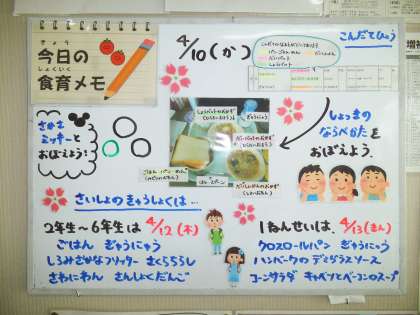 きょう
今日の
しょくいく
食育メモ
4/10(か)
こんだてひょう
さかさ
ミッキーと
おぼえよう!
しょっきの
ならべかたを
おぼえよう.
ぎゅうにゅう
さいしょのきゅうしょくは…
2年生〜6年生は 4/12 (木)
ごはん ぎゅうにゅう
しろみざかなフリッター さくらちらし
さわにわん さんしょくだんご
1ねんせいは、4/13(きん)
クロスロールパン ぎゅうにゅう
ハンバーグのデミグラスソース
コーンサラダ キャベツとベーコンのスープ